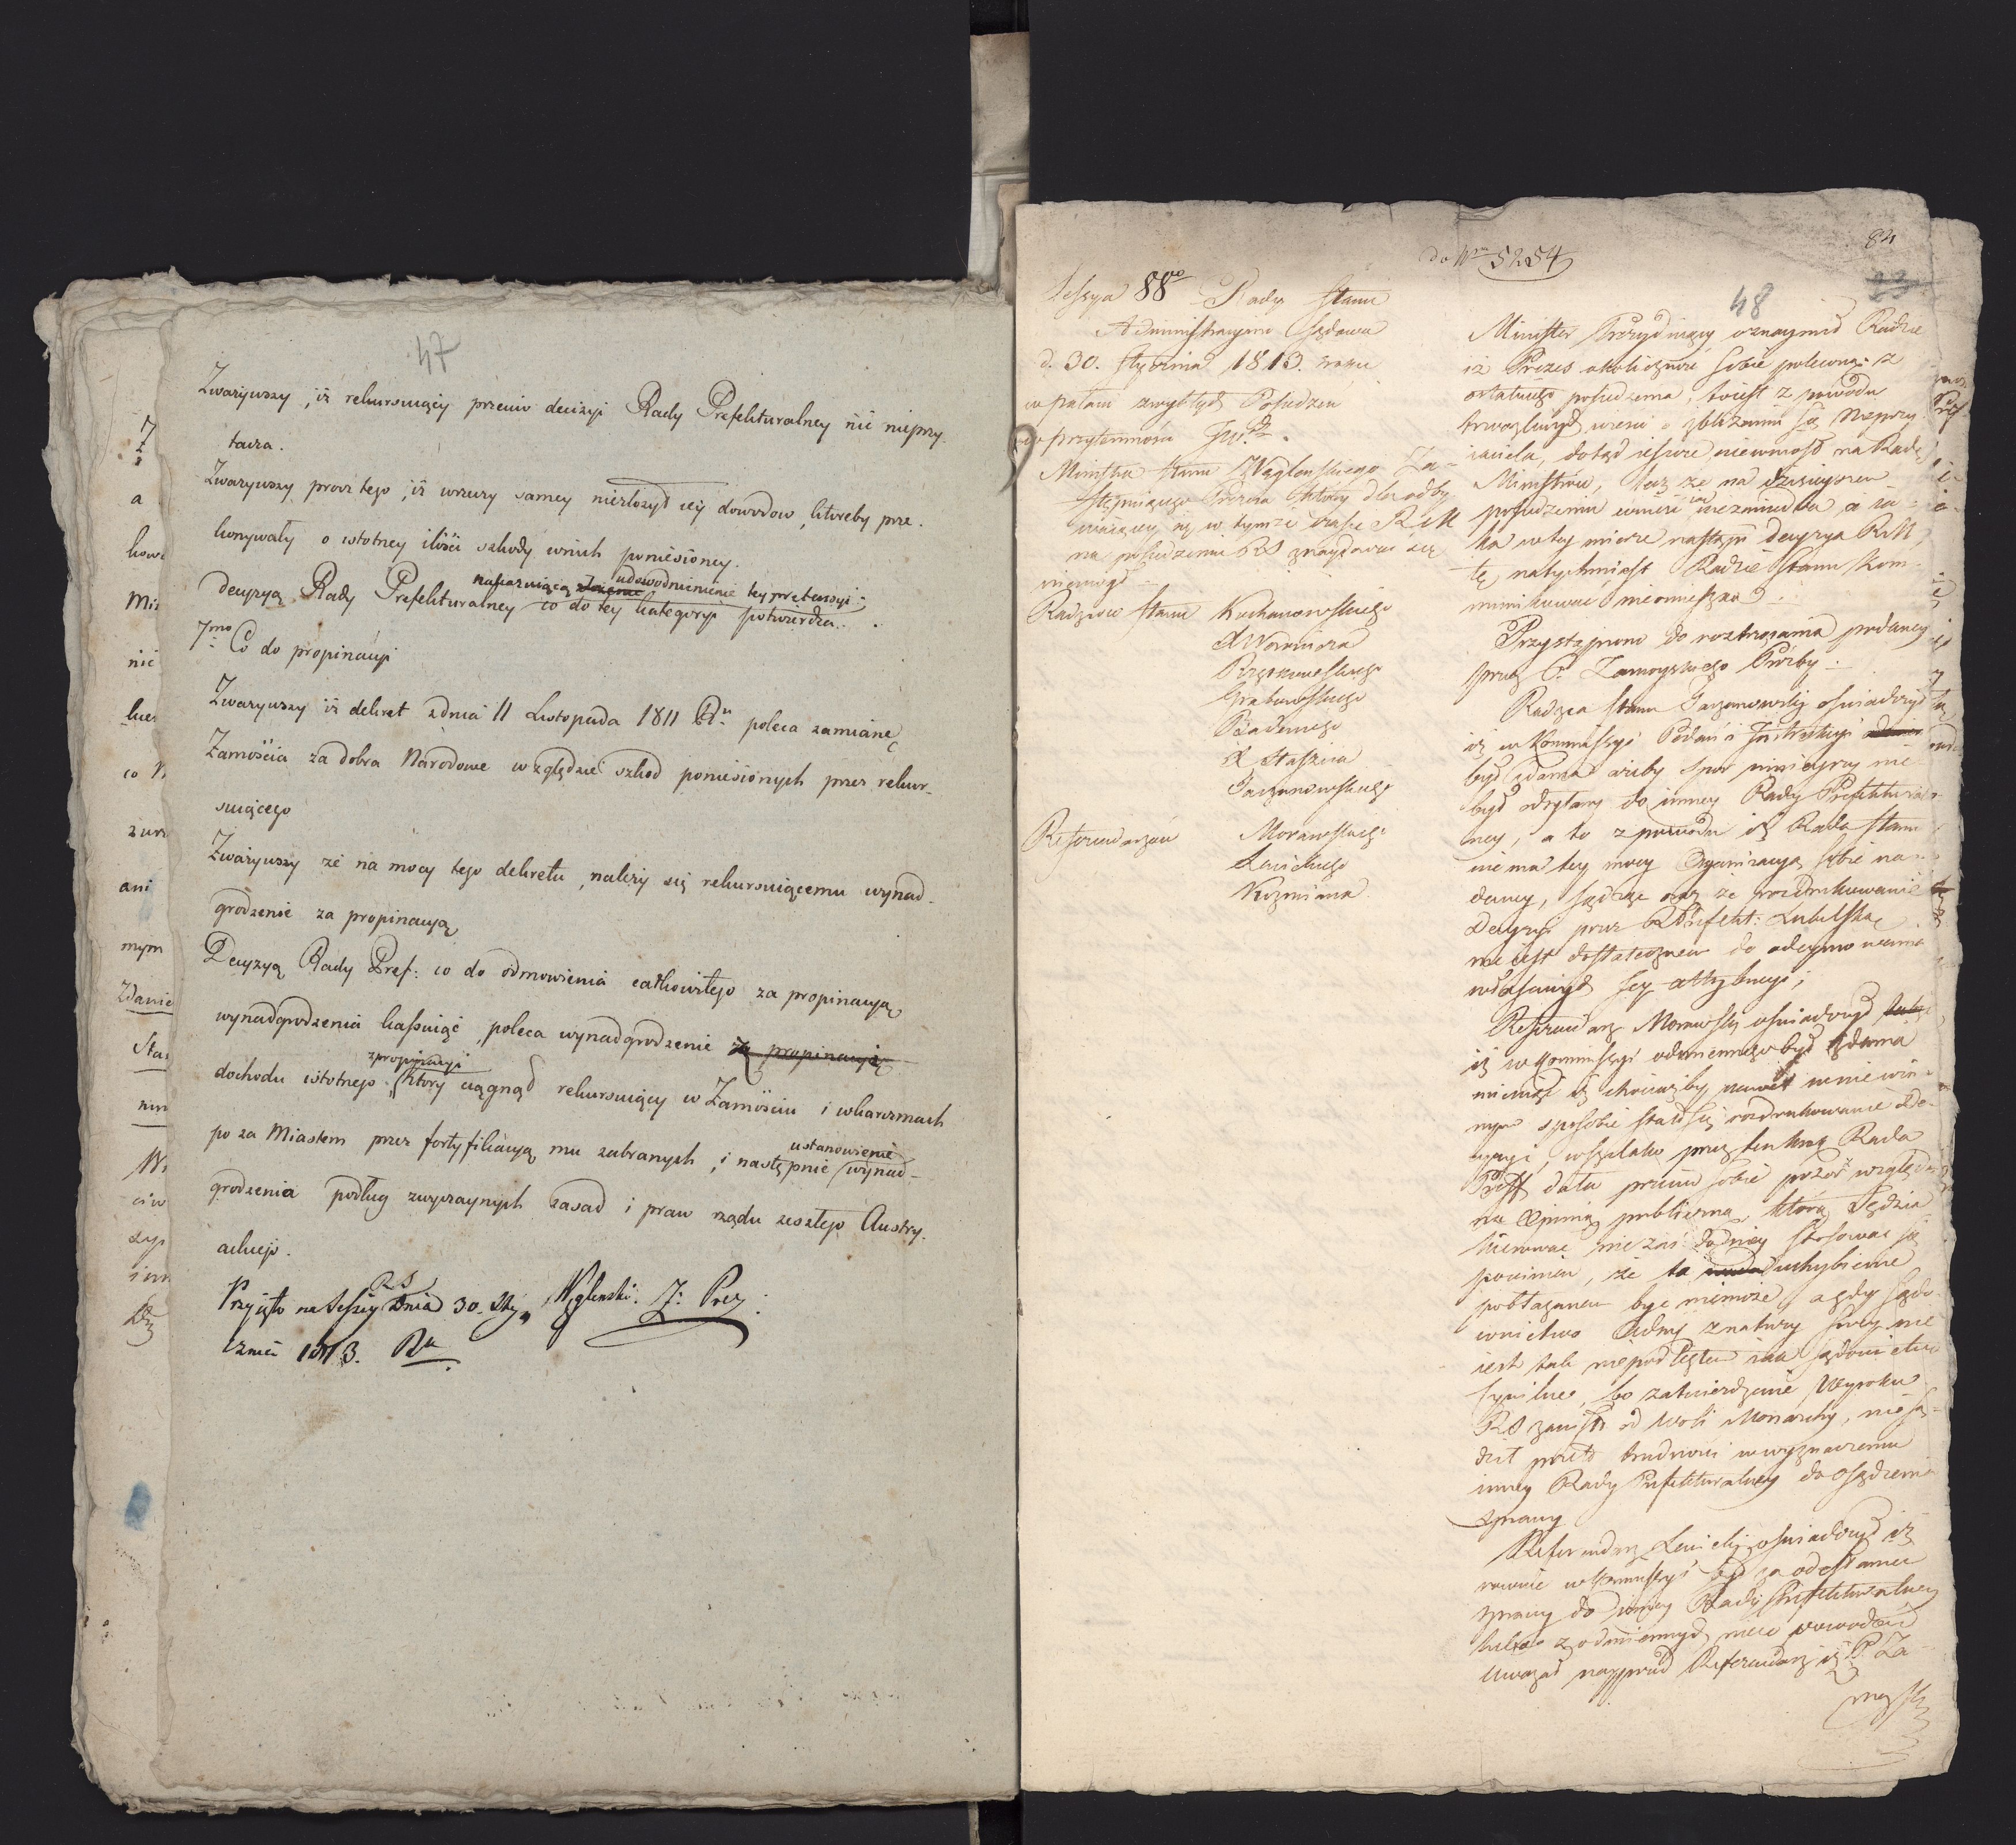 47
Zważywszy, iż rekursuiący przeciw decizyi Rady Prefekturalney nic nieprzy-
tacza.
Zważywszy procz tego, iż wrzeczy samey niezłożył iey dowodow, ktoreby prze-
konywały o istotney ilości szkody wnich poniesioney.
nakazuiącą udowodnienie tey pretensyi
Decyzyą Rady Prefekturalney co do tey kategoryi potwierdza.
7mo Co do propinacyi
Zważywszy iż dekret zdnia 11 Listopada 1811 Ru poleca zamianę
Zamościa za dobra Narodowe względzie szkod poniesionych przez rekur-
suiącego
Zważywszy że na mocy tego dekretu, należy się rekursuiącemu wynad-
grodzenie za propinacyą
Decyzyą Rady Pref: co do odmowienia całkowitego za propinacyą
wynadgrodzenia kassuiąc, poleca wynadgrodzenie za propinacyią
zpropinacyi
dochodu istotnego, ktory ciągnął rekursuiący w Zamościu i wkarczmach
po za Miastem przez fortyfikacyą mu zabranych, i następnie ustanowienie wynad-
grodzenia podług zwyczaynych zasad i praw rządu zeszłego Austry-
ackiego.
Przyięto na Sessyi RS Dnia 30. Sty- Węglenski. Z: Prez:
cznia 1813. Ru
do Nru 5254
84
23
48
Sessya 88va Rady Stanu
Administracyino Sądowa
d. 30. Stycznia 1813. roku
w pałacu zwykłych Posiedzeń
w przytomności JWPP.
Ministra Stanu Węglenskiego Za-
stępuiącego Prezesa który dla odby-
waiącey się w tymże czasie R M
na posiedzeniu RS znaydować się
niemógł
Radzców Stanu Kochanowskiego
Woronicza
Grabowskiego
Badeniego
X Staszica
Jarzanowskiego
Referendarzów Morawskiego
Lewickiego
Kozmiana
Minister Prezyduiący oznaymił Radzie
iż Prezes okoliczność sobie poleconą z
ostatniego posiedzenia, toiest z powodu
trwożliwych wieści o zbliżeniu się Nieprzy-
iaciela, dotąd ieszcze niewniosł na Radę
Ministrów, lecz że na dzisieyszem
posiedzeniu wnieść niezaniedba a ia-
ka wtey mierze nastąpi decyzya RM,
tę natychmiast Radzie Stanu kom-
munikować nieomieszka.
Przystąpiono do roztrząśania podaney
przez P. Zamoyskiego Proźby.
Radzca Stanu Jarzanowski oświadczył
iż w Kommissyi Podań i Instrukcyi
był zdania ażeby spor ninieyszy nie
był odesłany do inney Rady Prefektural-
ney, a to z powodu iż Rada Stanu
nie ma tey mocy Organizacyą sobie na-
daney, sądzi oraz że rozdrukowanie
Decyzyi przez R Prefekt: Lubelską
nie iest dostateczne do odeymowania
właściwych Jey attrybucyi;
Referendarz Morawski oświadczył
iż w Kommissyi odmiennego był zdania
mieniąc iż chociażby nawet w niewin-
nym sposobie stało się rozdrukowanie De-
cyzyi, wszelako przez ten krok Rada
Preff dała przeciw sobie pozór względu
na Opinią publiczną, którą Sędzia
kierować nie zaś do niey stosować się
powinien, że to uchybienie
pobłażanem być niemoże, a gdy Sądo-
wnictwo Adm: z natury swey nie
iest tak niepodległem iak sądownictwo
Cywilne, bo zatwierdzenie Wyroków
RS zawisło od Woli Monarchy, nie są-
dził przeto trudności w wyznaczeniu
inney Rady Prefekturalney do osądzenia
sprawy
Referendarz Lewicki oświadczył iż
rownie w Kommissyi był za odesłaniem
sprawy do inney Rady Prefekturalney
lecz z odmiennych nieco powodów
Uważał nayprzód Referendarz iż P. Za-
moyski